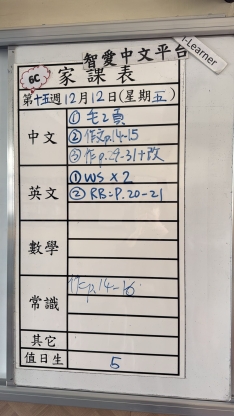 i-Learner
智愛中文平台
6C
家課表
第十五週12月12日(星期五)
中文
① 毛2頁
② 作文p.14-15
③ 作 p. -31+改
英文
① WS x 2
② RB=P.20-21
數學
常識
作p.14-16
其它
值日生
5